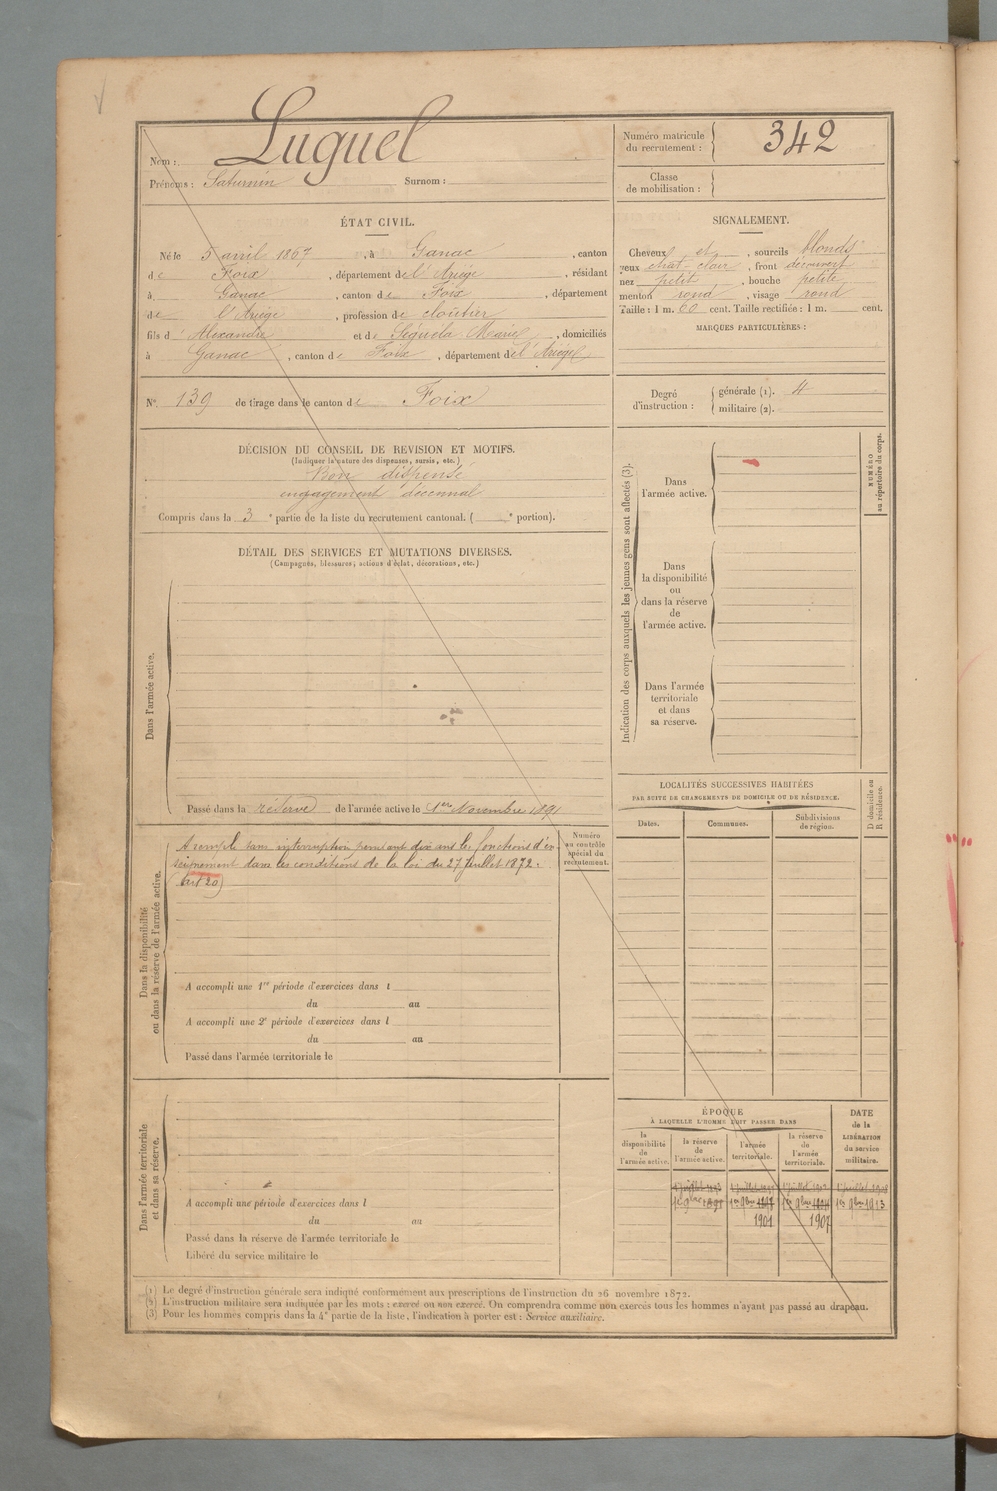 Nom : Luguel
Prénoms : Saturnin Surnom :
Numéro matricule du recrutement : 342
Classe de mobilisation :
ÉTAT CIVIL.
Né le 5 avril 1867, à Ganac, canton
de Foix, département de l'Ariége, résidant
à Ganac, canton de Foix, département
de l'Ariége, profession de cloutier
fils d'Alexandre et de Séguéla Marie, domiciliés
à Ganac, canton de Foix, département de l'Ariége
SIGNALEMENT.
Cheveux et, sourcils blonds
yeux chat. clair, front découvert
nez petit, bouche petite
menton rond, visage rond
Taille : 1 m. 60 cent. Taille rectifiée : 1 m. cent.
MARQUES PARTICULIÈRES :
N° 139 de tirage dans le canton de Foix
Degré d'instruction :
générale (1). 4
militaire (2).
DÉCISION DU CONSEIL DE REVISION ET MOTIFS.
(Indiquer la nature des dispenses, sursis, etc.)
Bon dispensé
engagement décennal
Compris dans la 3e partie de la liste du recrutement cantonal. ( e portion).
DÉTAIL DES SERVICES ET MUTATIONS DIVERSES.
(Campagnes, blessures, actions d'éclat, décorations, etc.)
Dans l'armée active.
Passé dans la réserve de l'armée active le 1er Novembre 1891
Indication des corps auxquels les jeunes gens sont affectés (3).
Dans
l'armée active.
Dans
la disponibilité
ou
dans la réserve
de
l'armée active.
Dans l'armée
territoriale
et dans
sa réserve.
NUMÉRO
au répertoire du corps.
LOCALITÉS SUCCESSIVES HABITÉES
PAR SUITE DE CHANGEMENTS DE DOMICILE OU DE RÉSIDENCE.
Dates. Communes. Subdivisions de région.
D domicile ou R résidence.
Numéro
au contrôle
spécial du
recrutement.
Dans la disponibilité
ou dans la réserve de l'armée active.
A rempli sans interruption pendant dix ans les fonctions d'en-
seignement dans les conditions de la loi du 27 Juillet 1872.
(art 20)
A accompli une 1re période d'exercices dans l
du au
A accompli une 2e période d'exercices dans l
du au
Passé dans l'armée territoriale le
Dans l'armée territoriale
et dans sa réserve.
A accompli une période d'exercices dans l
du au
Passé dans la réserve de l'armée territoriale le
Libéré du service militaire le
ÉPOQUE
À LAQUELLE L'HOMME DOIT PASSER DANS
la disponibilité de l'armée active.
la réserve de l'armée active.
l'armée territoriale.
la réserve de l'armée territoriale.
DATE de la LIBÉRATION du service militaire.
1er 9bre 1913
1901 1907
(1) Le degré d'instruction générale sera indiqué conformément aux prescriptions de l'instruction du 26 novembre 1872.
(2) L'instruction militaire sera indiquée par les mots : exercé ou non exercé. On comprendra comme non exercés tous les hommes n'ayant pas passé au drapeau.
(3) Pour les hommes compris dans la 4e partie de la liste, l'indication à porter est : Service auxiliaire.